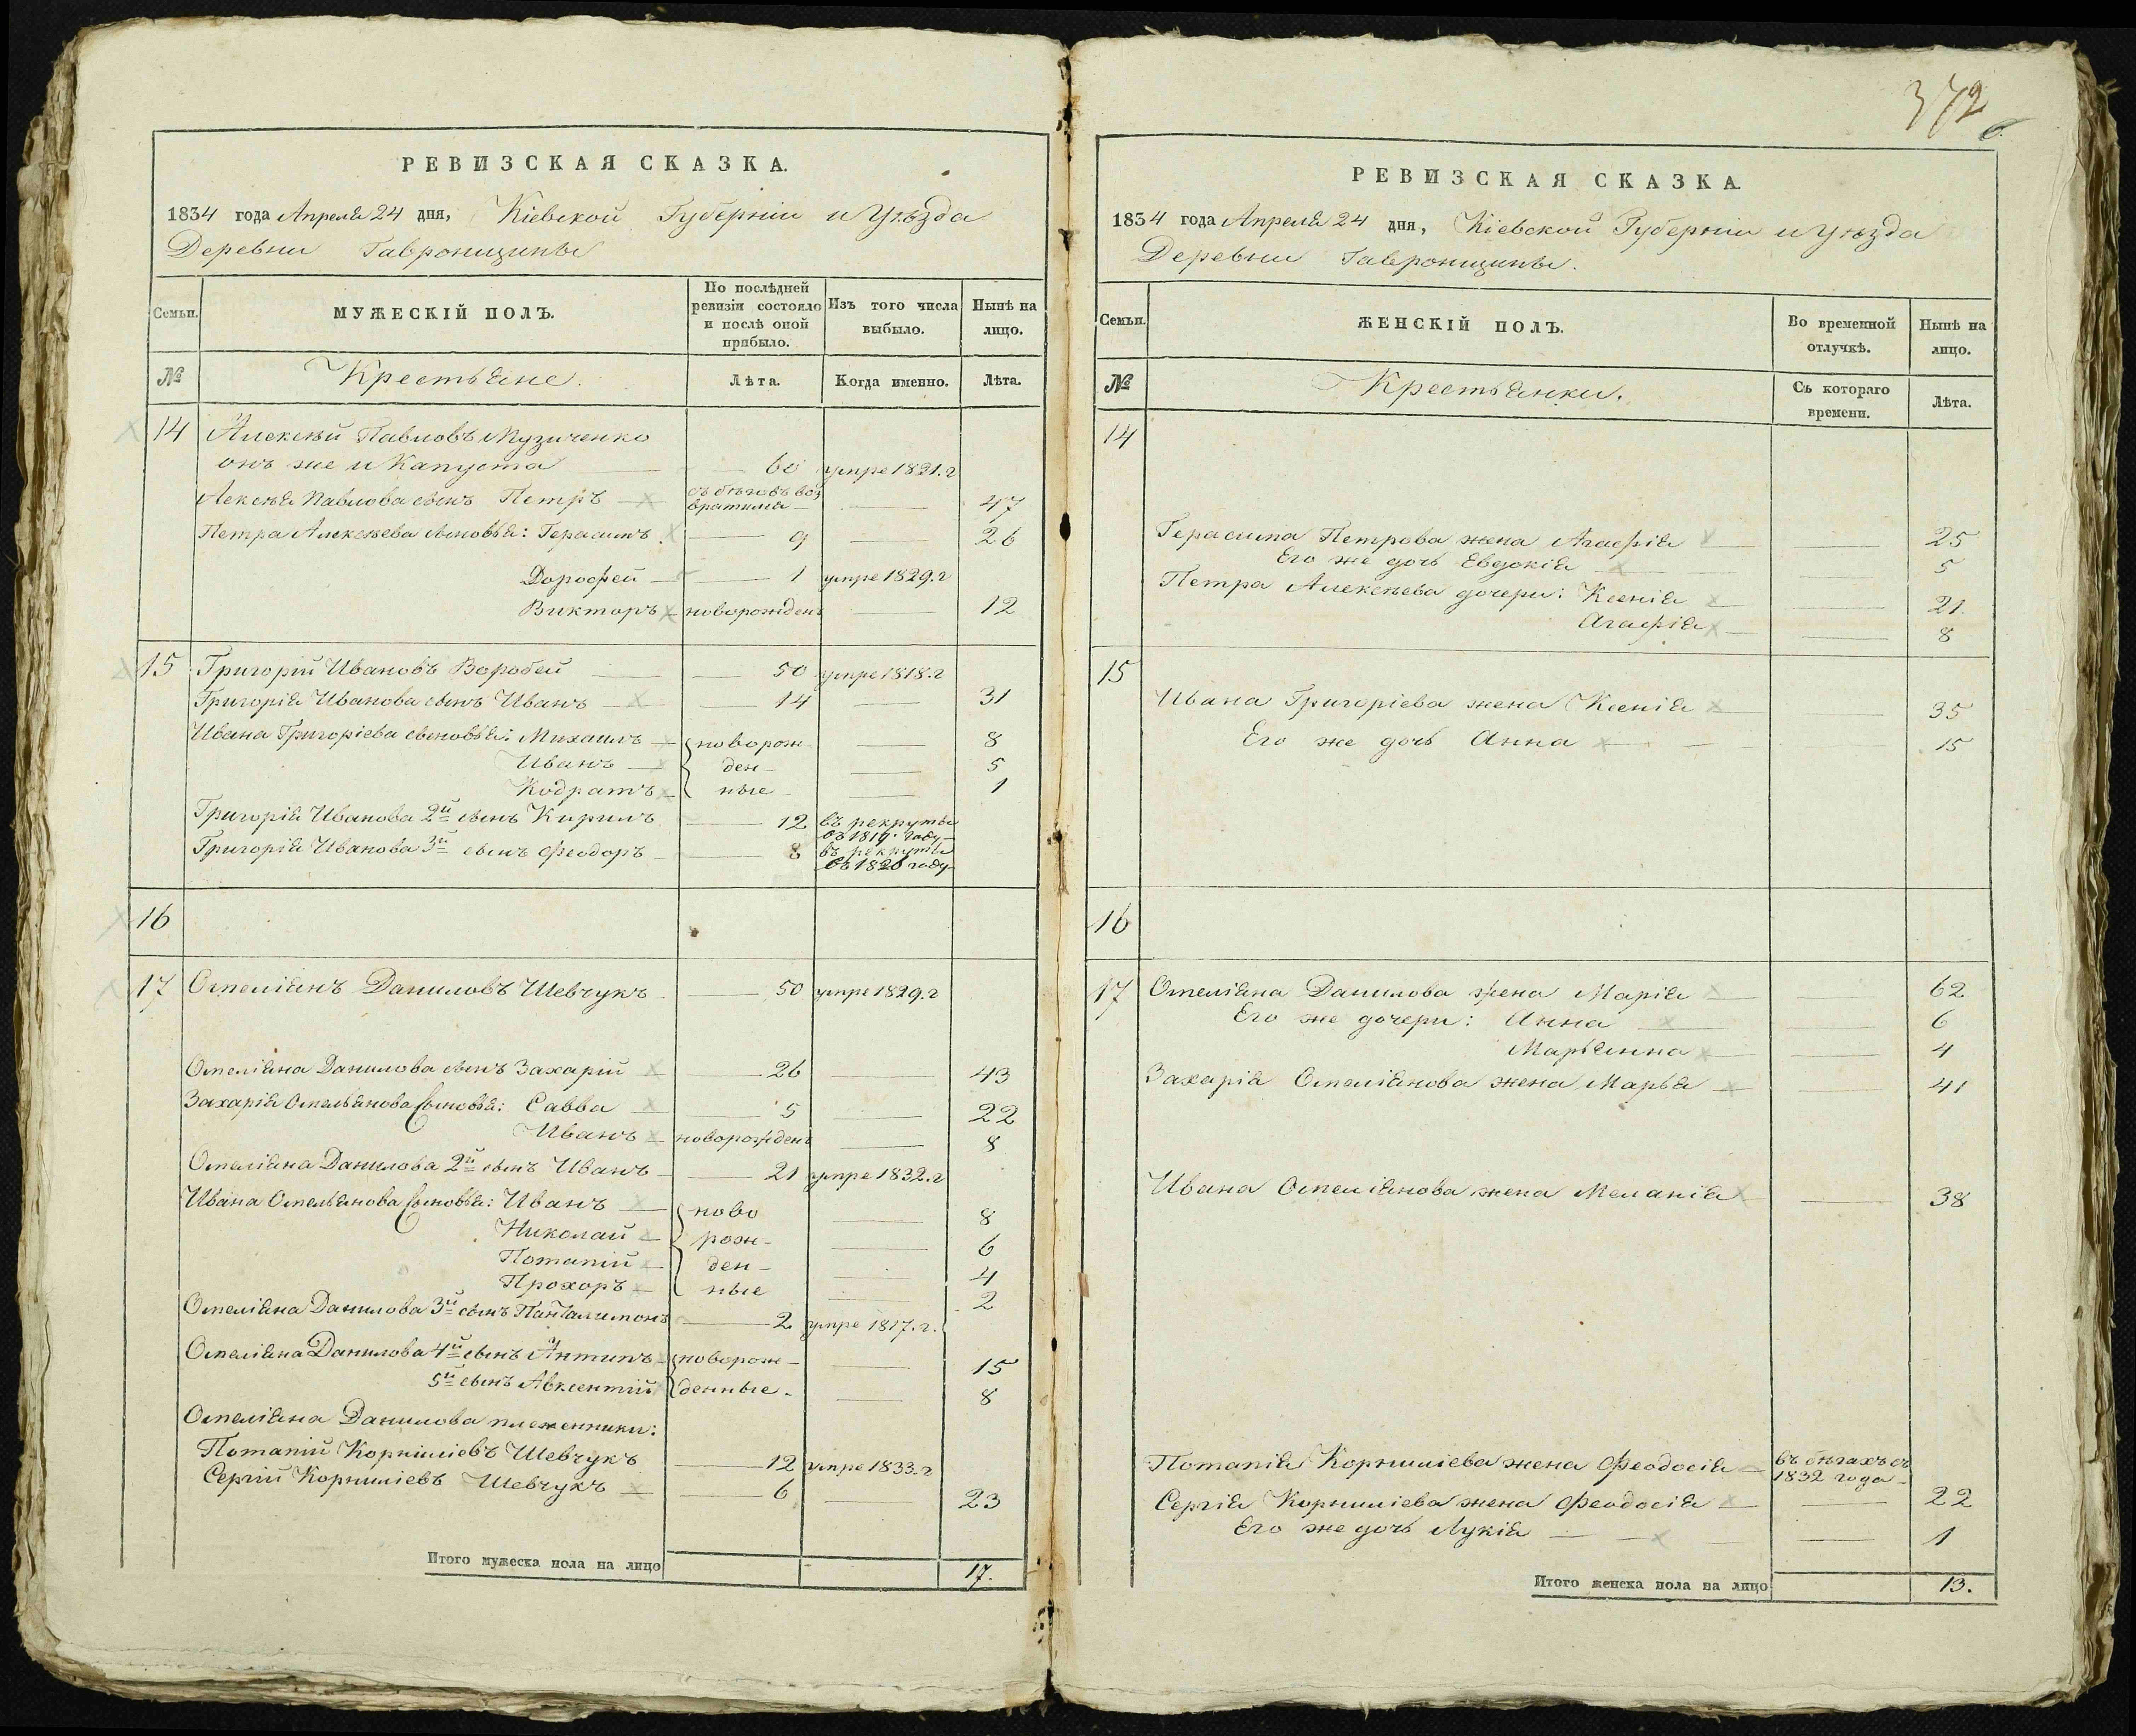 РЕВИЗСКАЯ СКАЗКА.
1834 года Апреля 24 дня, Кіевской Губерніи и Уѣзда
Деревни Гавронщины
Семьи. МУЖЕСКІЙ ПОЛЪ. По послѣдней ревизіи состояло и послѣ оной прибыло. Изъ того числа выбыло. Нынѣ на лицо.
№ Крестьяне. Лѣта. Когда именно. Лѣта.
14 Алексѣй Павловъ Музиченко
онъ же и Капуста 60 умре 1821.г
Алексѣя Павлова сынъ Петръ съ бѣговъ воз
вратился 47
Петра Алексѣева сыновья: Герасимъ 9 26
Дорофей 1 умре 1829.г
Викторъ новорожденъ 12
15 Григорій Ивановъ Воробей 50 умре 1818.г
Григорія Иванова сынъ Иванъ 14 31
Ивана Григоріева сыновья: Михаилъ новорож 8
Иванъ ден 5
Кодратъ ные 1
Григорія Иванова 2й сынъ Кирилъ 12 въ рекруты
въ 1819 году
Григорія Иванова 3й сынъ Феодоръ 8 въ рекруты
въ 1826 году
16
17 Омеліянъ Даниловъ Шевчукъ 50 умре 1829.г
Омеліяна Данилова сынъ Захарій 26 43
Захарія Омельянова Сыновья: Савва 5 22
Иванъ новорожденъ 8
Омеліяна Данилова 2й сынъ Иванъ 21 умре 1832.г
Ивана Омельянова Сыновья: Иванъ ново 8
Николай рож- 6
Потапій ден- 4
Прохоръ ные 2
Омеліяна Данилова 3й сынъ Панталимонъ 2 умре 1817.г.
Омеліяна Данилова 4й сынъ Антипъ новорож- 15
5й сынъ Авксентій денные. 8
Омеліяна Данилова племенники:
Потапій Корниліевъ Шевчукъ 12 умре 1833.г
Сергій Корниліевъ Шевчукъ 6 23
Итого мужеска пола на лицо 17.
372
РЕВИЗСКАЯ СКАЗКА.
1834 года Апреля 24 дня, Кіевской Губерніи и Уѣзда
Деревни Гавронщины.
Семьи. ЖЕНСКІЙ ПОЛЪ. Во временной отлучкѣ. Нынѣ на лицо.
№ Крестьянки. Съ котораго времени. Лѣта.
14
Герасима Петрова жена Агафія 25
Его же дочь Евдокія 5
Петра Алексѣева дочери: Ксенія 21
Агафія 8
15
Ивана Григоріева жена Ксенія 35
Его же дочь Анна 15
16
17 Омеліяна Данилова жена Марія 62
Его же дочери: Анна 6
Марьянна 4
Захарія Омеліянова жена Марья 41
Ивана Омеліянова жена Меланія 38
Потапія Корниліева жена Феодосія въ бѣгахъ съ
1832 года
Сергія Корниліева жена Феодосія 22
Его же дочь Лукія 1
Итого женска пола на лицо 13.